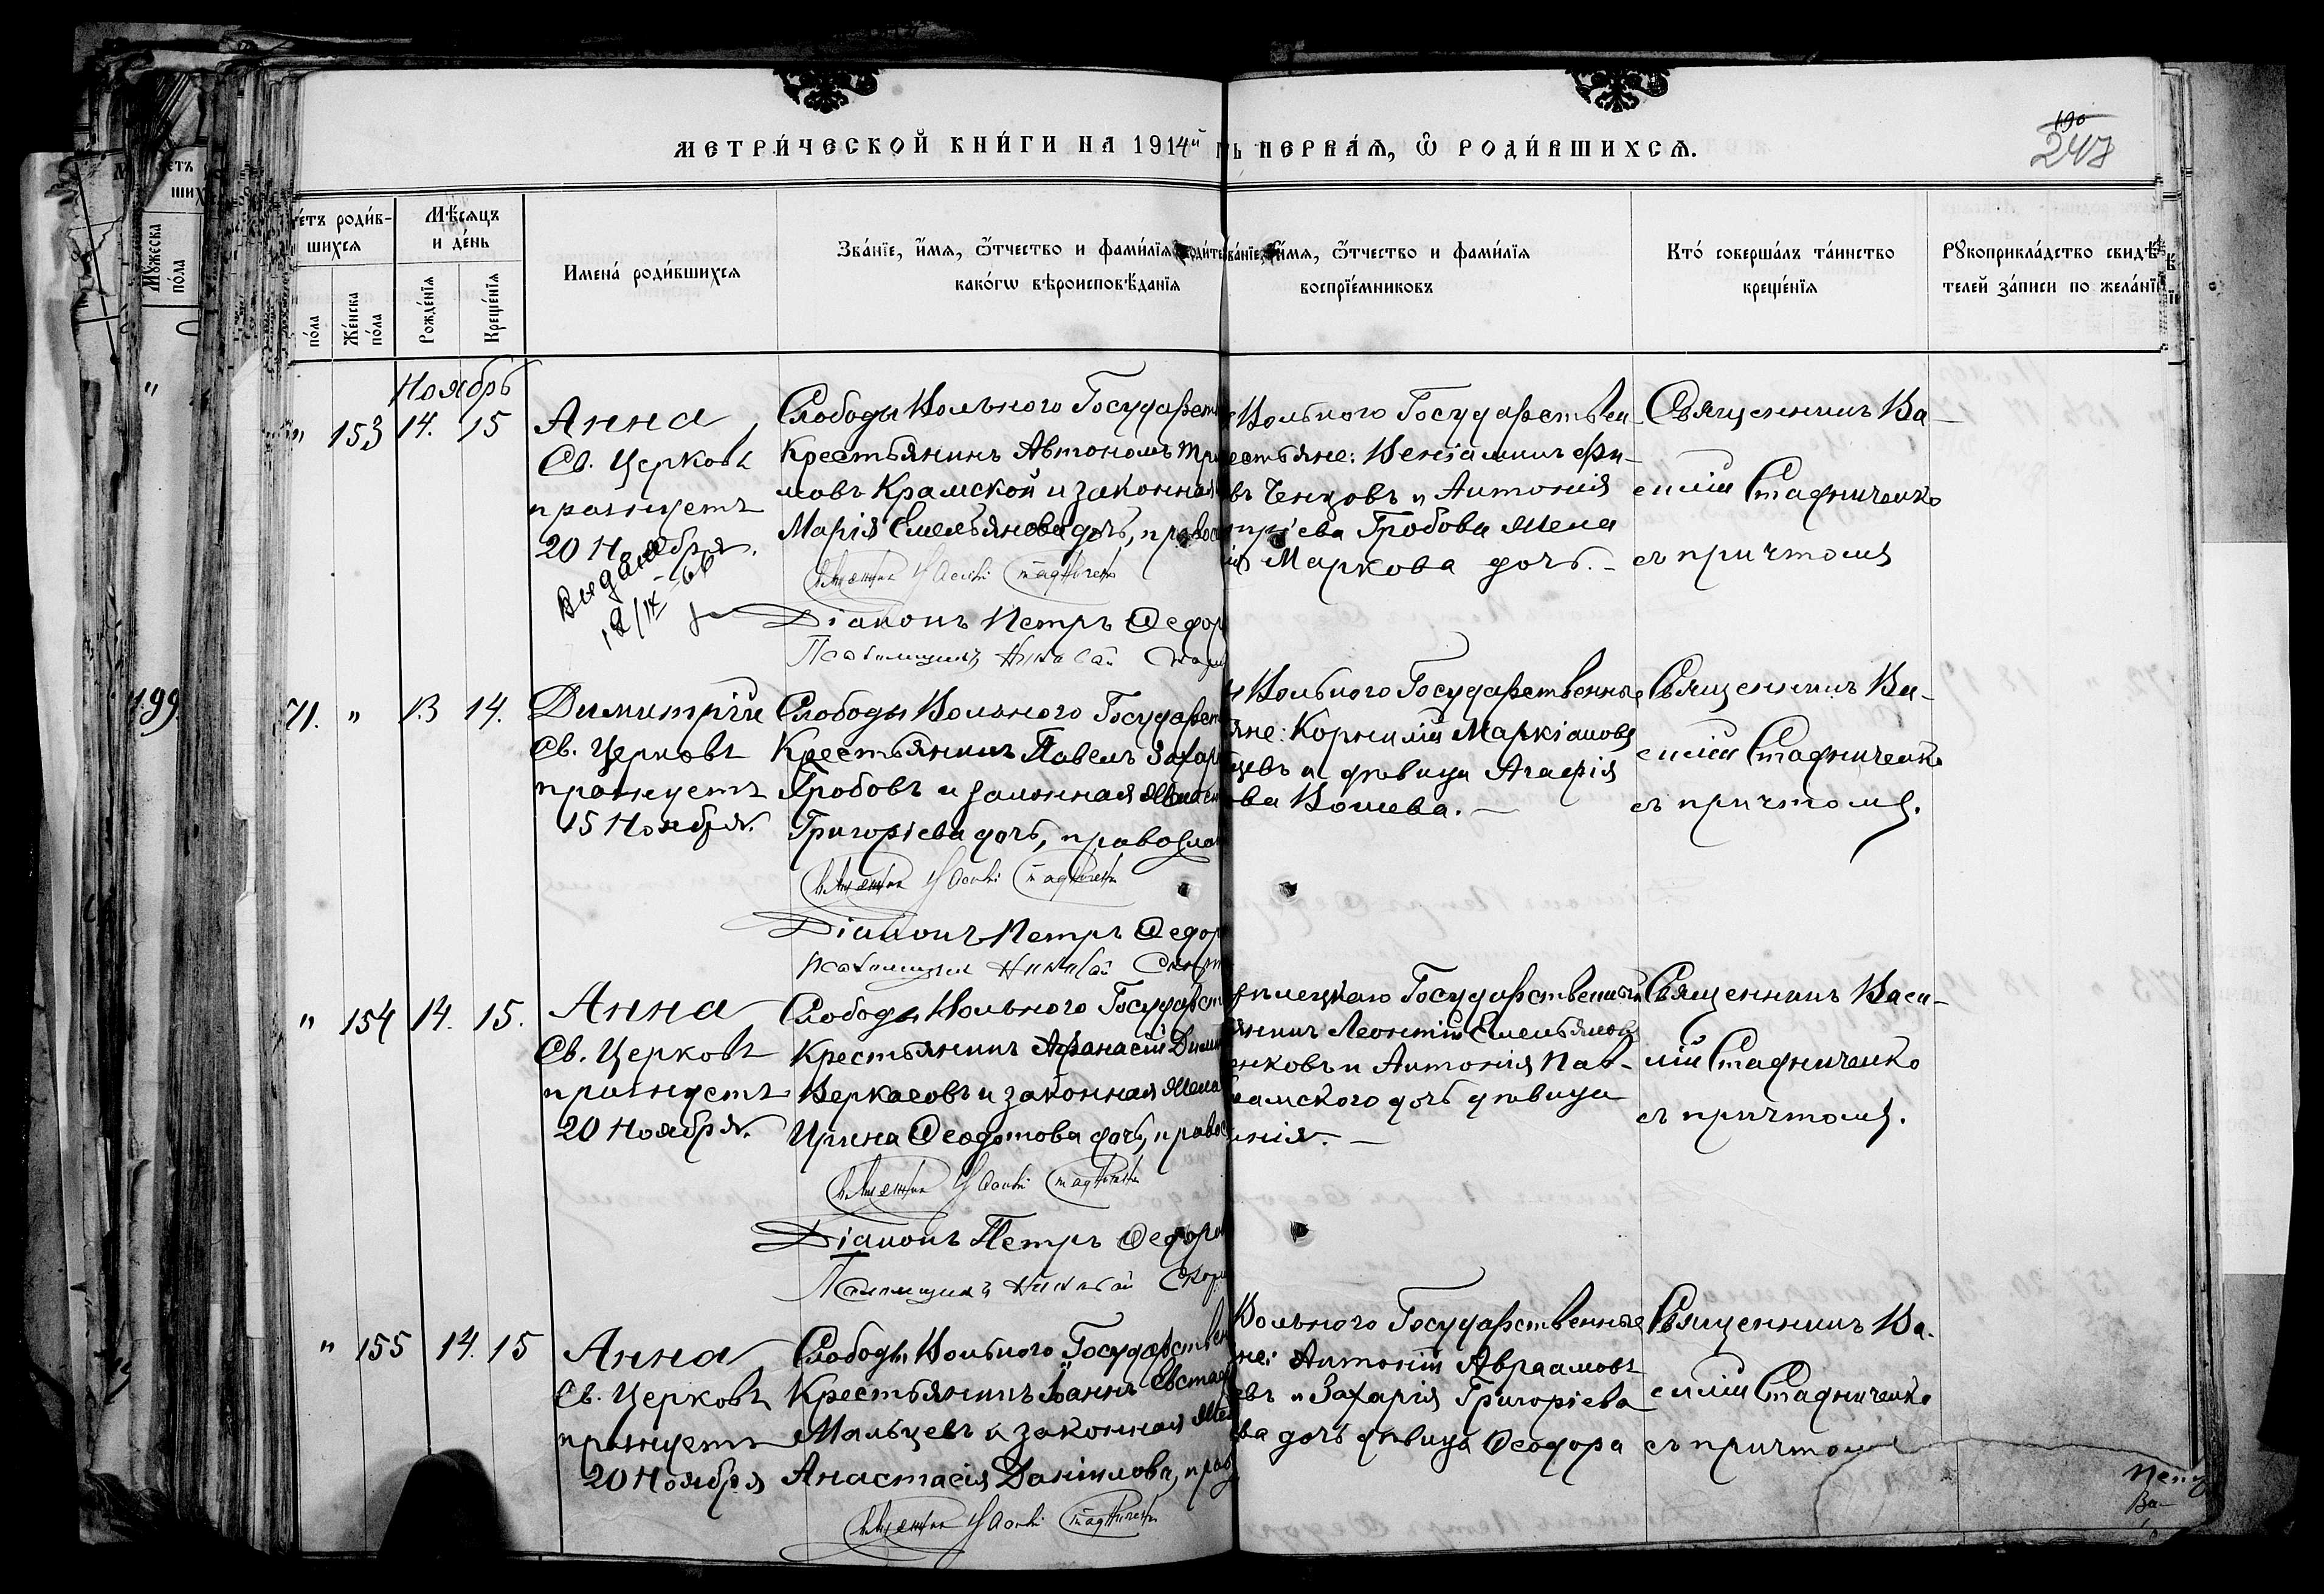 МЕТРИ́ЧЕСКОЙ КНИ́ГИ НА 1914й
ПЕРВА́Ѧ, Ѿ РОДИ́ВШИХСѦ.
190
247
е́тъ роди́в-
шихсѧ
Мѣ́сѧцъ
и де́нь
по́ла
Же́нска
по́ла
Рожде́нїѧ
Креще́нїѧ
Имена́ роди́вшихсѧ
Зва́нїе, и́мѧ, ѻ́тчество и фами́лїѧ
како́гѡ вѣроисповѣ́данїѧ
и́мѧ, ѻ́тчество и фами́лїѧ
воспрїе́мниковъ
Кто́ соверша́лъ та́инство
креще́нїѧ
Рꙋкоприкла́дство свидѣ́
телей за́писи по жела́нїю
Мꙋ́жеска
по́ла
Ноябрь
" 153 14. 15
Анна
Св. Церковь
празнуетъ
20 Ноября.
Выдана
Слободы Вольного Государств
Крестьянинъ Автономъ Три
мовъ Крамской и законная
Марія Емельянова дочь, правос
Священникъ Василій Стадниченко
Діаконъ Петръ Ѳедор
Псаломщикъ Николай Скор
Вольного Государствен
естьяне: Веніаминъ Фи-
въ Ченцовъ и Антонія
Гробова жена
Маркова дочь. -
Священникъ Ва-
силій Стадниченко
съ причтомъ
199
71. " 13 14.
Димитрій
Св. Церковь
празнуетъ
15 Ноября.
Слободы Вольного Государст
Крестьянинъ Павелъ Захар
Гробовъ и законная жена
Григорьева дочь, православ
Священникъ Василій Стадниченко
Діаконъ Петръ Ѳедор
Псаломщикъ Николай Скор
Вольного Государственные
яне: Корнилій Маркіановъ
цевъ и дѣвица Агафія
ова Конева. —
Священникъ Ва-
силій Стадниченко
съ причтомъ.
" 154 14. 15.
Анна
Св. Церковь
празнуетъ
20 Ноября.
Слободы Вольного Государст
Крестьянинъ Афанасій Дими
Веркасовъ и законная жена
Ирина Ѳеодотова дочь, правос
Священникъ Василій Стадниченко
Діаконъ Петръ Ѳедоро
Псаломщикъ Николай Скор
Государственный
янинъ Леонтій Емельяновъ
нковъ и Антонія Пав-
рамского дочь дѣвица
нія. —
Священникъ Васи-
лій Стадниченко
съ причтомъ.
" 155 14. 15
Анна
Св. Церковь
празнуетъ
20 Ноября
Слободы Вольного Государствен
Крестьянинъ Іоаннъ Евстаф
Мальцевъ и законная же
Анастасія Даніилова, прав
Священникъ Василій Стадниченко
Вольного Государственные
не: Антоній Авраамовъ
евъ и Захарія Григоріева
ва дочь дѣвица Ѳеодора
Священникъ Ва-
силій Стадниченко
съ причтомъ
Ва-